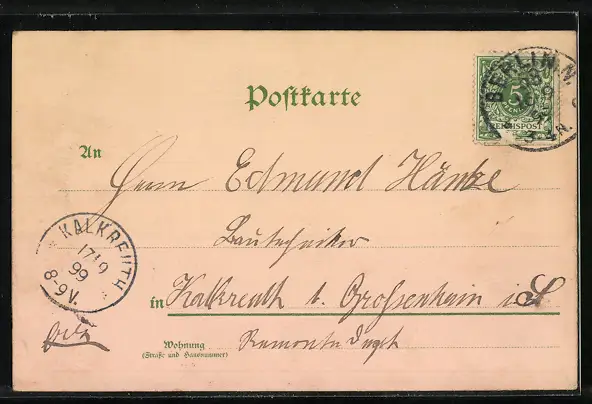 Postkarte
BERLIN N.
5
REICHSPOST
3-4N.
An
Herrn Edmund Hänke
Bautechniker
KALKREUTH
17/9
99
8-9V.
in Kalkreuth b. Grossenhain i/S
Wohnung
(Straße und Hausnummer)
Remonte